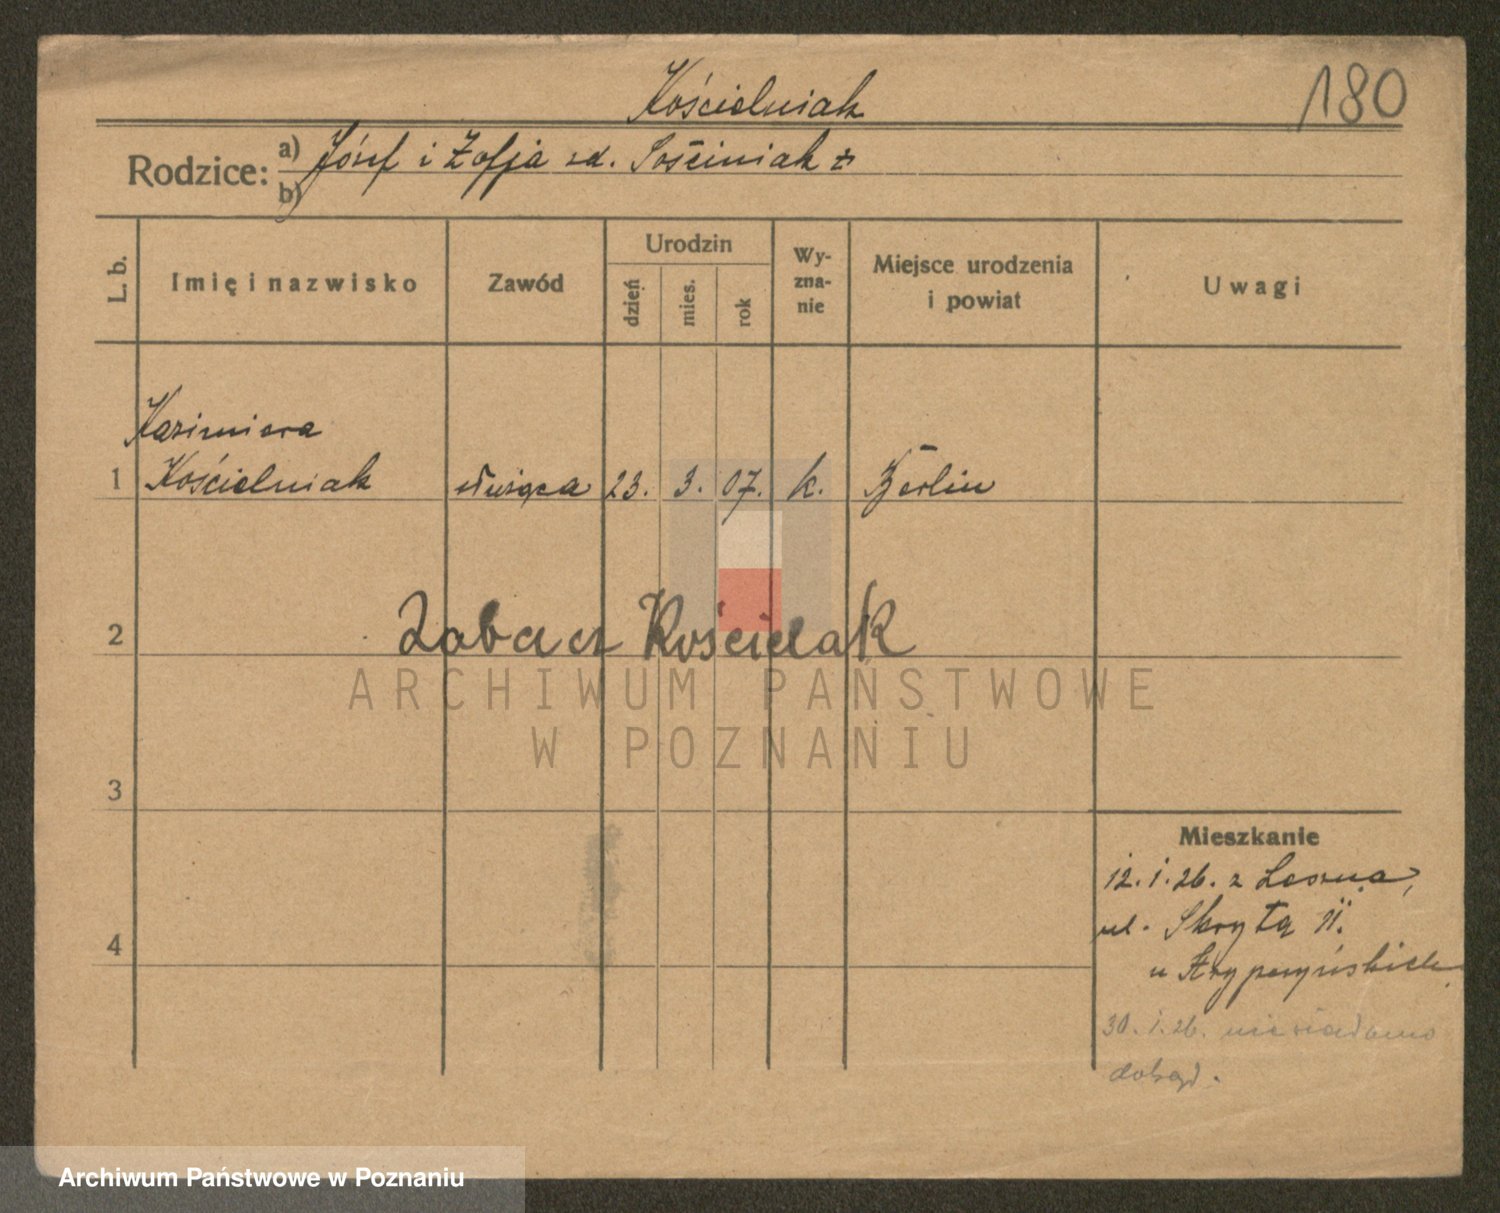 Kościelniak
180
Rodzice: a) Józef i Zofja zd. Sościniak
b)
L. b.
Imię i nazwisko
Zawód
Urodzin
dzień
mies.
rok
Wy-
zna-
nie
Miejsce urodzenia
i powiat
Uwagi
Kazimiera
1 Kościelniak służąca 23. 3. 07. k. Berlin
2 Zobacz Kościelak
ARCHIWUM PAŃSTWOWE
W POZNANIU
3
Mieszkanie
12.1.26. z Leszna,
ul. Skryta 11.
4
u
30.1.26. niewiadomo
dokąd.
Archiwum Państwowe w Poznaniu